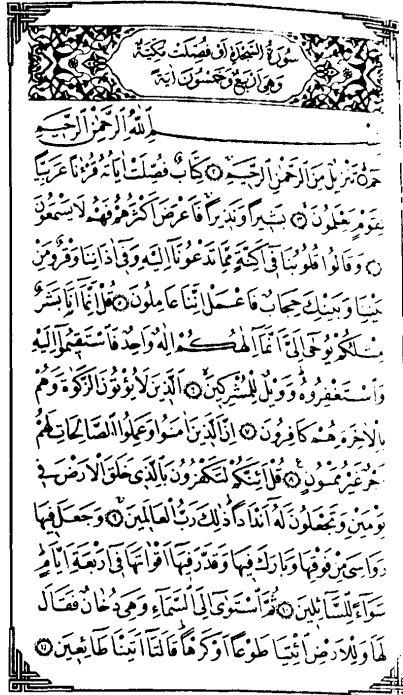 سُورَةُ السَّجْدَةِ اَوْ فُصِّلَتْ مَكِّيَّةٌ
وَهِيَ اَرْبَعٌ وَخَمْسُونَ اٰيَةً
بِسْمِ اللّٰهِ الرَّحْمٰنِ الرَّحِيمِ
حٰمٓ ۝ تَنْزِيلٌ مِنَ الرَّحْمٰنِ الرَّحِيمِ ۝٢ كِتَابٌ فُصِّلَتْ اٰيَاتُهُ قُرْءٰنًا عَرَبِيًّا
لِقَوْمٍ يَعْلَمُونَ ۝٣ بَشِيرًا وَنَذِيرًا فَاَعْرَضَ اَكْثَرُهُمْ فَهُمْ لَا يَسْمَعُونَ
۝ وَقَالُوا قُلُوبُنَا فِي اَكِنَّةٍ مِمَّا تَدْعُونَا اِلَيْهِ وَفِي اٰذَانِنَا وَقْرٌ وَمِنْ
بَيْنِنَا وَبَيْنِكَ حِجَابٌ فَاعْمَلْ اِنَّنَا عَامِلُونَ ۝٥ قُلْ اِنَّمَا اَنَا بَشَرٌ
مِثْلُكُمْ يُوحٰى اِلَيَّ اَنَّمَا اِلٰهُكُمْ اِلٰهٌ وَاحِدٌ فَاسْتَقِيمُوا اِلَيْهِ
وَاسْتَغْفِرُوهُ وَوَيْلٌ لِلْمُشْرِكِينَ ۝٦ الَّذِينَ لَا يُؤْتُونَ الزَّكٰوةَ وَهُمْ
بِالْاٰخِرَةِ هُمْ كَافِرُونَ ۝٧ اِنَّ الَّذِينَ اٰمَنُوا وَعَمِلُوا الصَّالِحَاتِ لَهُمْ
اَجْرٌ غَيْرُ مَمْنُونٍ ۝٨ قُلْ اَئِنَّكُمْ لَتَكْفُرُونَ بِالَّذِي خَلَقَ الْاَرْضَ فِي
يَوْمَيْنِ وَتَجْعَلُونَ لَهُ اَنْدَادًا ذٰلِكَ رَبُّ الْعَالَمِينَ ۝٩ وَجَعَلَ فِيهَا
رَوَاسِيَ مِنْ فَوْقِهَا وَبَارَكَ فِيهَا وَقَدَّرَ فِيهَا اَقْوَاتَهَا فِي اَرْبَعَةِ اَيَّامٍ
سَوَاءً لِلسَّائِلِينَ ۝١٠ ثُمَّ اسْتَوٰى اِلَى السَّمَاءِ وَهِيَ دُخَانٌ فَقَالَ
لَهَا وَلِلْاَرْضِ ائْتِيَا طَوْعًا اَوْ كَرْهًا قَالَتَا اَتَيْنَا طَائِعِينَ ۝١١